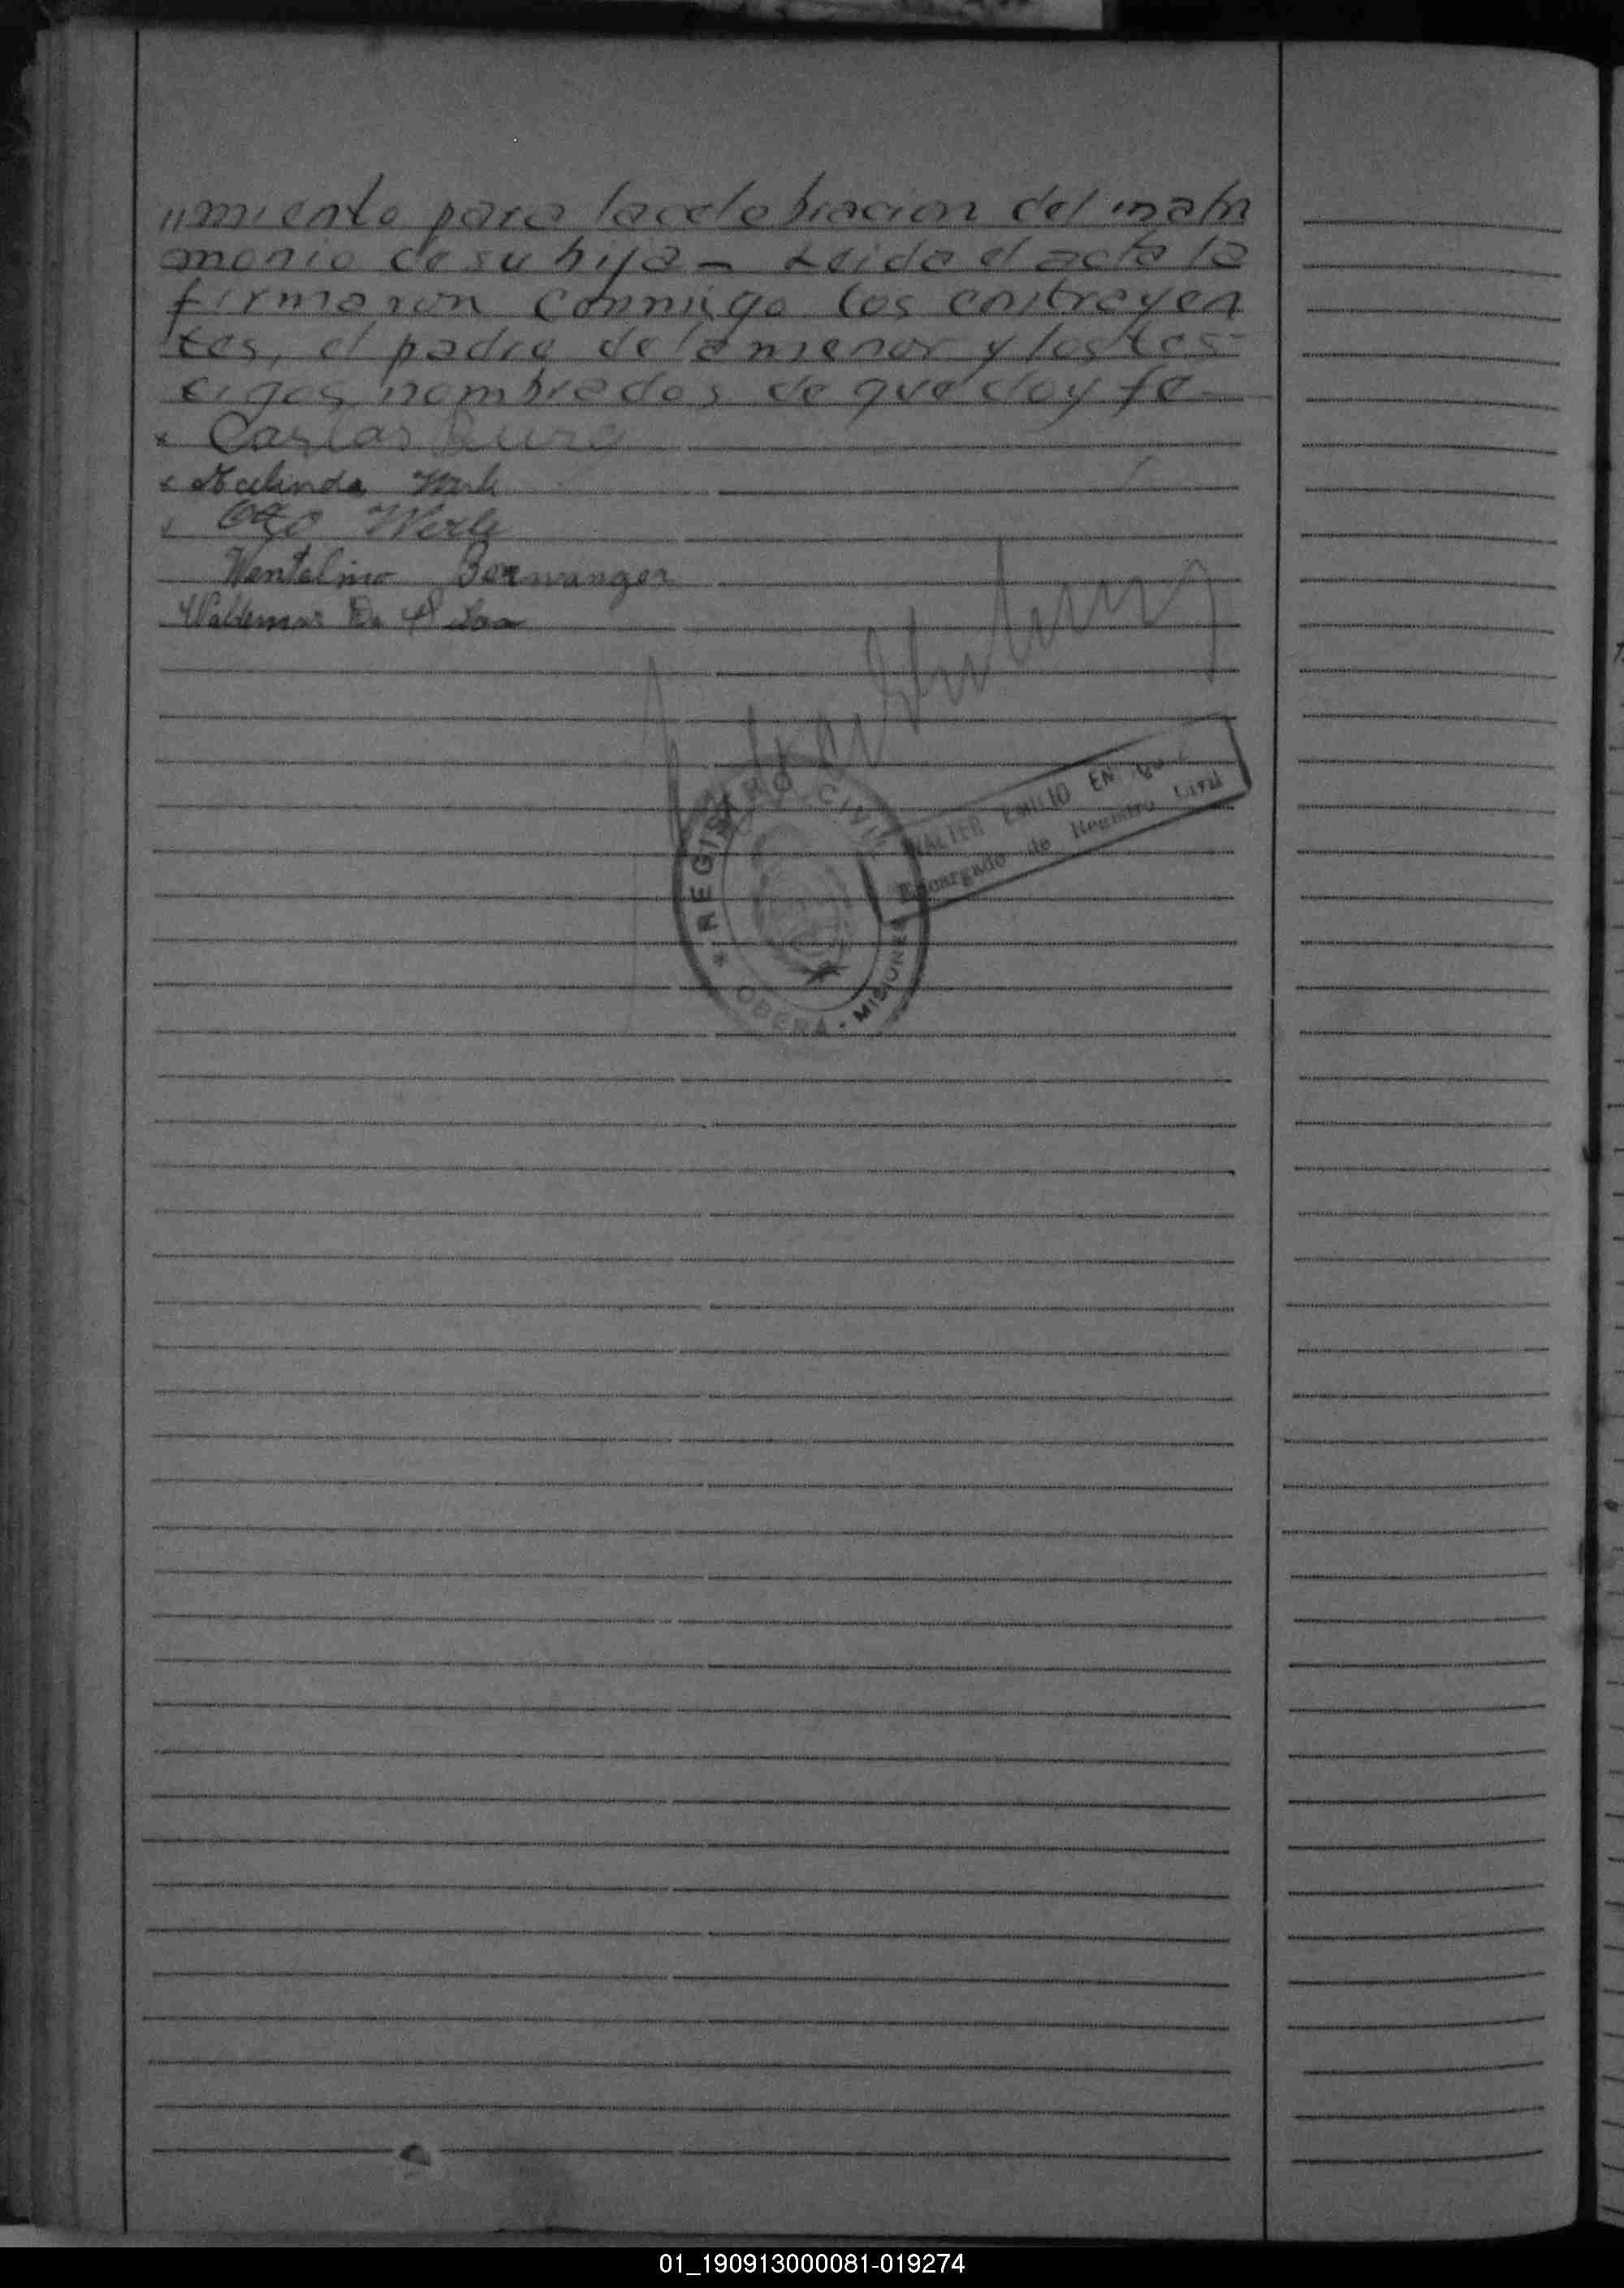 "miento para la celebracion del matri
monio de su hija - Leida el acta la
firmaron conmigo los contrayen
tes, el padre de la menor y los tes-
tigos nombrados de que doy fe -
x Carlos
x Werle
x Otto Werle
Wentelino Berwanger
Waldemar Da
REGISTRO CIVIL
WALTER EMILIO
Encargado de Registro Civil
* OBERA - MISIONES
01_190913000081-019274